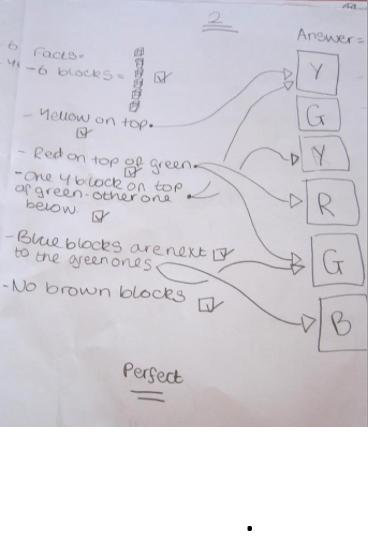 2
Answer=
Facts-
-6 blocks=
Y
G
- Yellow on top.
Y
- Red on top of green
-One y block on top
of green-other one
below.
R
-Blue blocks are next
to the green ones
G
-No brown blocks
B
Perfect